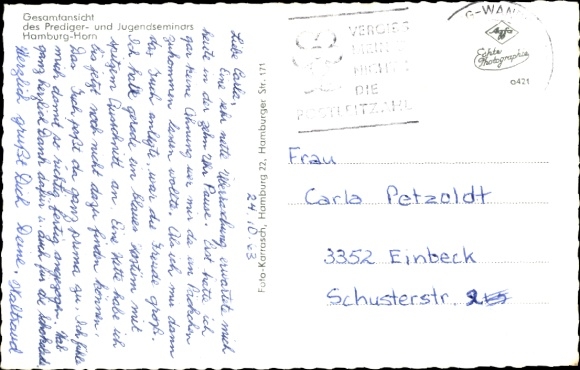 Gesamtansicht
des Prediger- und Jugendseminars
Hamburg-Horn
24.10.63
Liebe Carla,
Eine sehr nette Überraschung erwartete mich
heute in der zehn Uhr Pause. Erst hatte ich
gar keine Ahnung wer mir da ein Päckchen
zukommen lassen wollte. Als ich mir dann
das Tuch anlegte, war die Freude groß.
Ich hatte gerade ein blaues Kostüm mit
spitzem Ausschnitt an. Eine Kette habe ich
bis jetzt noch nicht dazu finden können.
Das Tuch paßt da ganz prima zu. Ich fühle
mich damit so richtig fertig angezogen. Hab
ganz herzlich Dank dafür u. auch für die
Herzlich grüßt Dich Deine
Foto-Karrasch, Hamburg 22, Hamburger Str. 171
VERGISS
MEIN
NICHT
DIE
POSTLEITZAHL
G-WAN
Agfa
Echte
Photographie
0421
Frau
Carla Petzoldt
3352 Einbeck
Schusterstr.